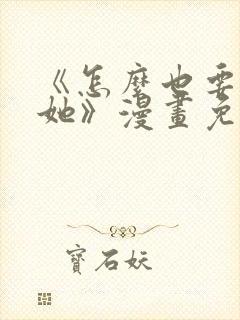 《怎麽也要
她》漫畫免
寶石妖